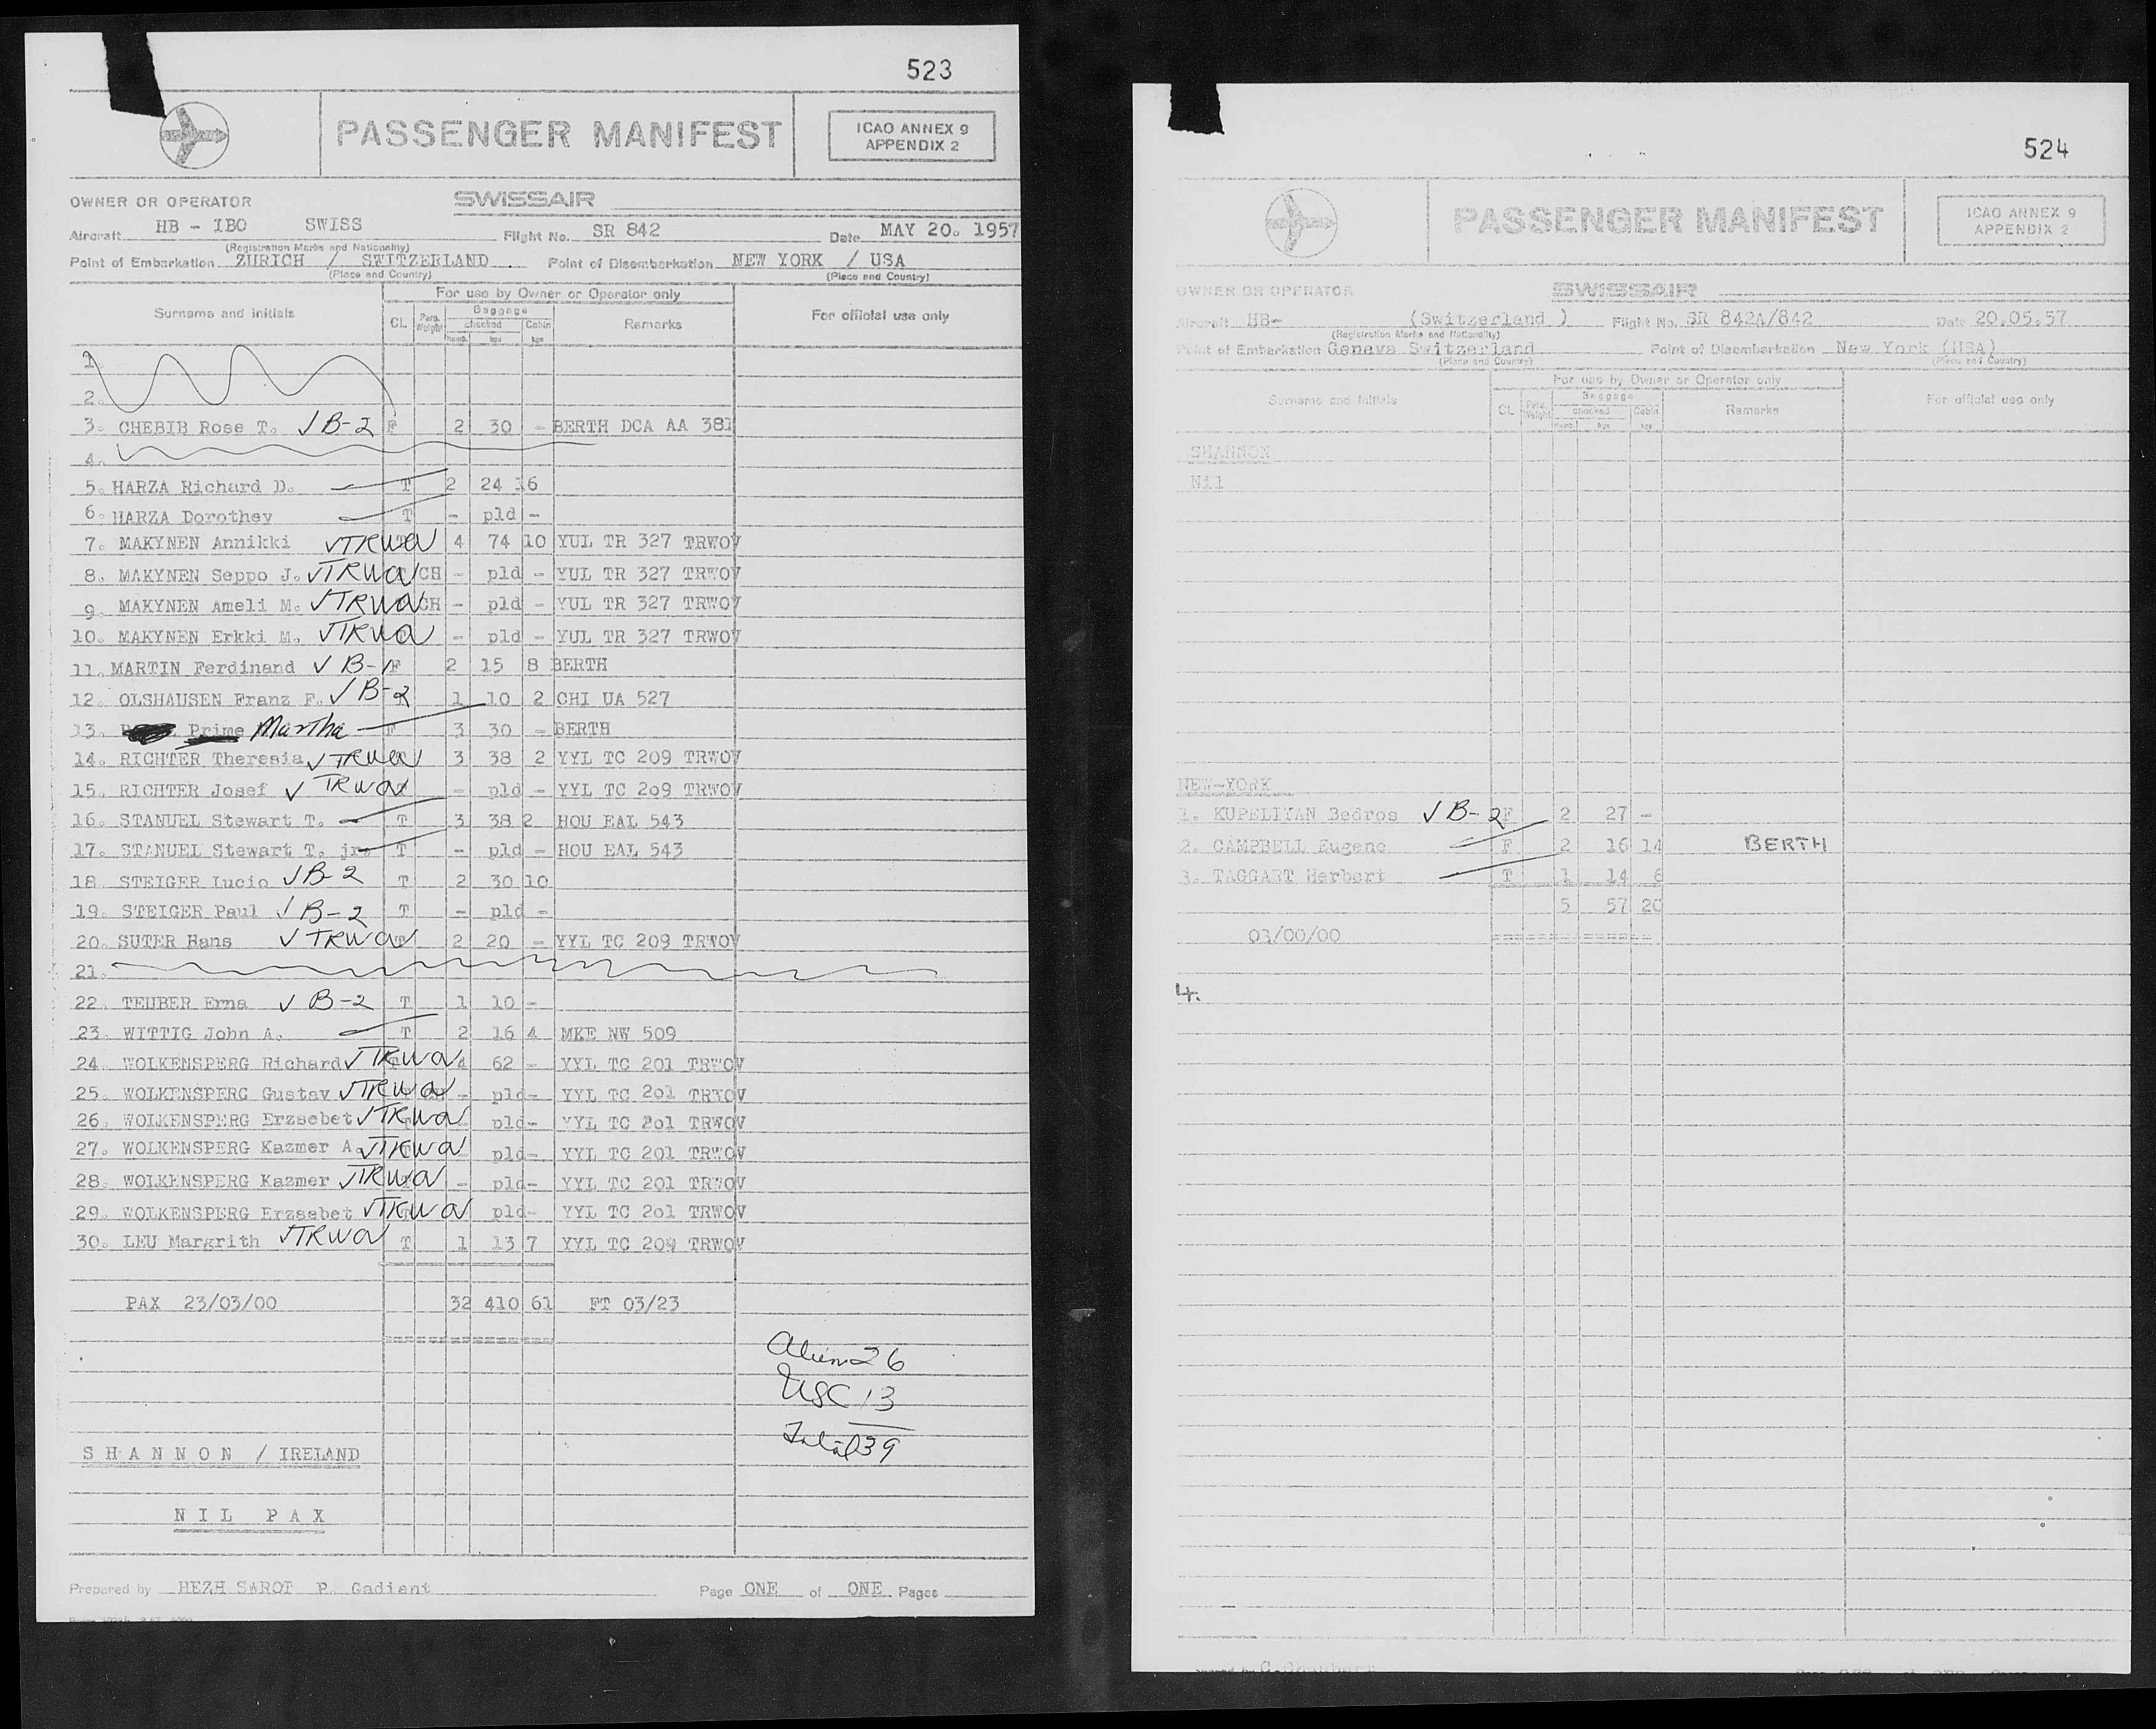 523
PASSENGER MANIFEST
ICAO ANNEX 9
APPENDIX 2
OWNER OR OPERATOR SWISSAIR
Aircraft HB - IBO SWISS Flight No. SR 842 Date MAY 20. 1957
(Registration Marks and Nationality)
Point of Embarkation ZURICH / SWITZERLAND Point of Disembarkation NEW YORK / USA
(Place and Country) (Place and Country)
Surname and initials For use by Owner or Operator only For official use only
CL Pers. Weight Baggage checked Cabin Remarks
Numb. kgs kgs
1.
2.
3. CHEBIB Rose T. √ B-2 F 2 30 - BERTH DCA AA 381
4.
5. HARZA Richard D. T 2 24 16
6. HARZA Dorothey T - pld -
7. MAKYNEN Annikki √ TRWOV 4 74 10 YUL TR 327 TRWOV
8. MAKYNEN Seppo J. √ TRWOV CH - pld - YUL TR 327 TRWOV
9. MAKYNEN Ameli M. √ TRWOV CH - pld - YUL TR 327 TRWOV
10. MAKYNEN Erkki M. √ TRWOV - pld - YUL TR 327 TRWOV
11. MARTIN Ferdinand √ B-1 F 2 15 8 BERTH
12. OLSHAUSEN Franz F. √ B-2 1 10 2 CHI UA 527
13. Prime Martha F 3 30 - BERTH
14. RICHTER Theresia √ TRWOV 3 38 2 YYL TC 209 TRWOV
15. RICHTER Josef √ TRWOV - pld - YYL TC 209 TRWOV
16. STANUEL Stewart T. T 3 38 2 HOU EAL 543
17. STANUEL Stewart T. jr. T - pld - HOU EAL 543
18. STEIGER Lucio √ B-2 T 2 30 10
19. STEIGER Paul √ B-2 T - pld -
20. SUTER Hans √ TRWOV 2 20 - YYL TC 209 TRWOV
21.
22. TEUBER Erna √ B-2 T 1 10 -
23. WITTIG John A. T 2 16 4 MKE NW 509
24. WOLKENSPERG Richard √ TRWOV 4 62 - YYL TC 201 TRWOV
25. WOLKENSPERG Gustav √ TRWOV - pld - YYL TC 201 TRWOV
26. WOLKENSPERG Erzsebet √ TRWOV pld - YYL TC 201 TRWOV
27. WOLKENSPERG Kazmer A. √ TRWOV pld - YYL TC 201 TRWOV
28. WOLKENSPERG Kazmer √ TRWOV - pld - YYL TC 201 TRWOV
29. WOLKENSPERG Erzsebet √ TRWOV pld - YYL TC 201 TRWOV
30. LEU Margrith √ TRWOV T 1 13 7 YYL TC 209 TRWOV
PAX 23/03/00 32 410 61 FT 03/23
Alien 26
USC 13
Total 39
SHANNON / IRELAND
NIL PAX
Prepared by HEZH SAROT P. Gadient Page ONE of ONE Pages
524
PASSENGER MANIFEST
ICAO ANNEX 9
APPENDIX 2
OWNER OR OPERATOR SWISSAIR
Aircraft HB- (Switzerland ) Flight No. SR 842A/842 Date 20.05.57
(Registration Marks and Nationality)
Point of Embarkation Geneva Switzerland Point of Disembarkation New York (USA)
(Place and Country) (Place and Country)
Surname and initials For use by Owner or Operator only For official use only
CL Pers. Weight Baggage checked Cabin Remarks
Numb. kgs kgs
SHANNON
Nil
NEW-YORK
1. KUPELIYAN Bedros √ B-2 F 2 27 -
2. CAMPBELL Eugene F 2 16 14 BERTH
3. TAGGART Herbert T 1 14 6
5 57 20
03/00/00
4.